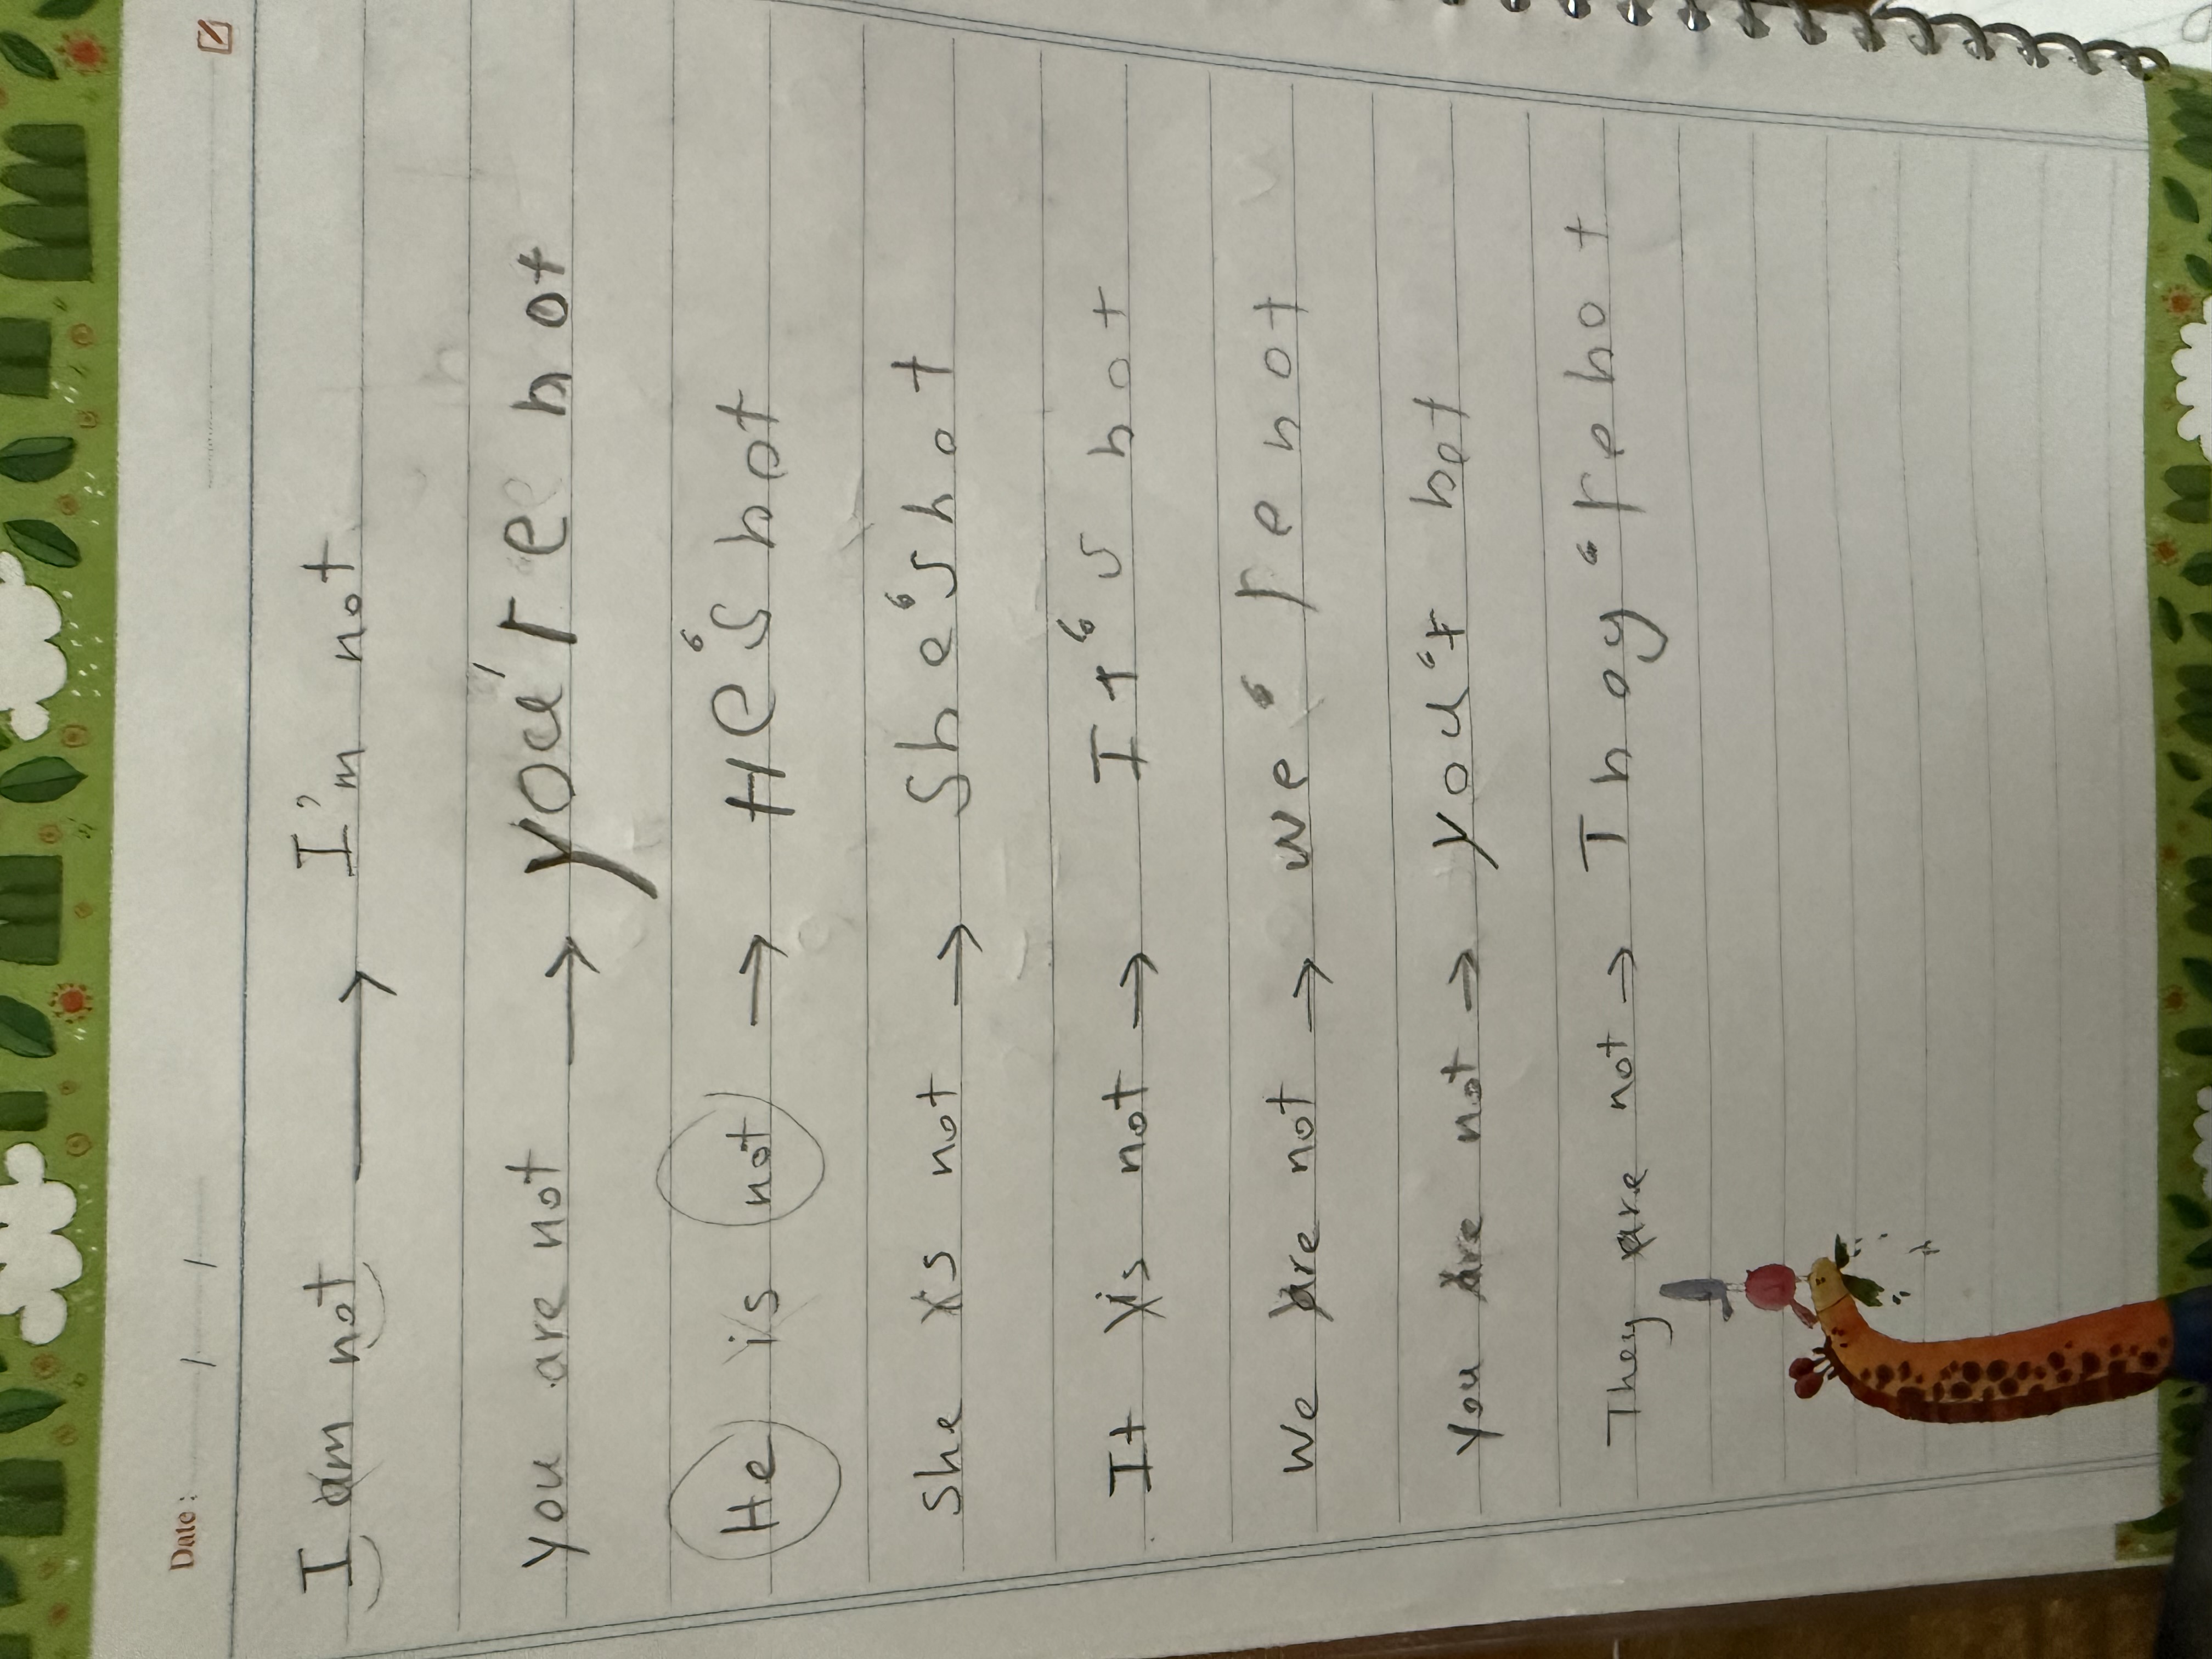 Date: / /
I am not → I'm not
you are not → you're not
He is not → He's not
She is not → She's not
It is not → It's not
We are not → we're not
you are not → you'r not
They are not → Thoy're not